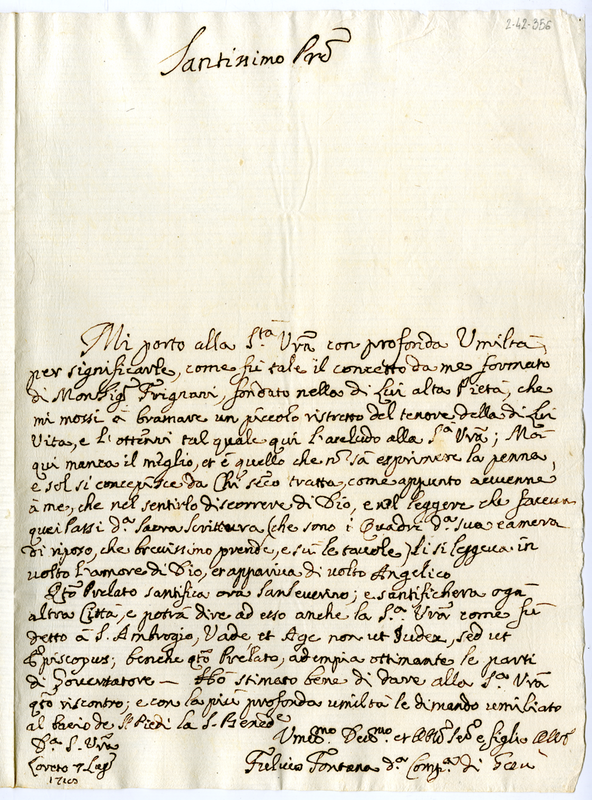 2-42-356
Santissimo Prẽ
Mi porto alla S.tà Vrã con profonda Umiltà,
per significarle, come fù tale il concetto da me formato
di Monsig.r Frignani, fondato nella di Lui alta Pietà, che
mi mossi à bramare un piccolo ristretto del tenore della di Lui
Vita, e l'ottenni tal quale qui l'accludo alla S.tà Vrã; Mà
qui manca il meglio, et è quello che nõ sà esprimere la penna,
e sol si concepisce da Chi seco tratta, come appunto avvenne
à me, che nel sentirlo discorrere di Dio, e nel leggere che faceva
quei Passi d.a Sacra Scrittura (che sono i Quadri d.a sua camera
di riposo, che brevissimo prende, e sù le tavole) li si leggeva in
volto l'amore di Dio, et appariva di volto Angelico
Qsto Prelato santifica ora Sanseverino; e santificherà ogni
altra Città, e potrà dire ad esso anche la S.tà Vrã come fù
detto à S. Ambrogio, Vade et Age non ut Judex, sed ut
Episcopus; benche qto Prelato, adempia ottimante le parti
di Governatore — Hò stimato bene di dare alla S.tà Vrã
qto riscontro; e con la più profonda umiltà le dimando umiliato
al bacio de S.ti Piedi la S. Bened.e
D.a S. Vrã
Umilmo Devmo et Obblmo Serv.e e figlio Obb.mo
Loreto 7 Lug.o
Fulvio Fontana d.a Comp.a di Giesù